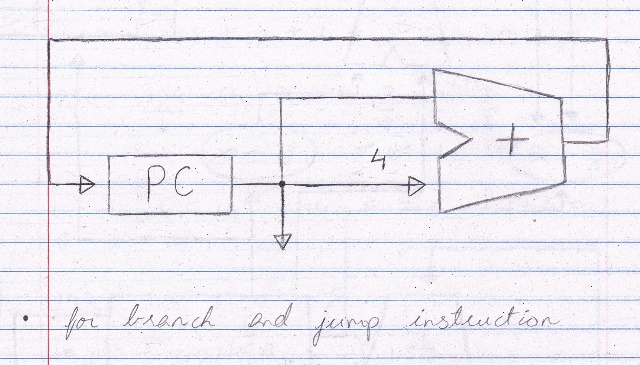 4
PC
+
• for branch and jump instruction